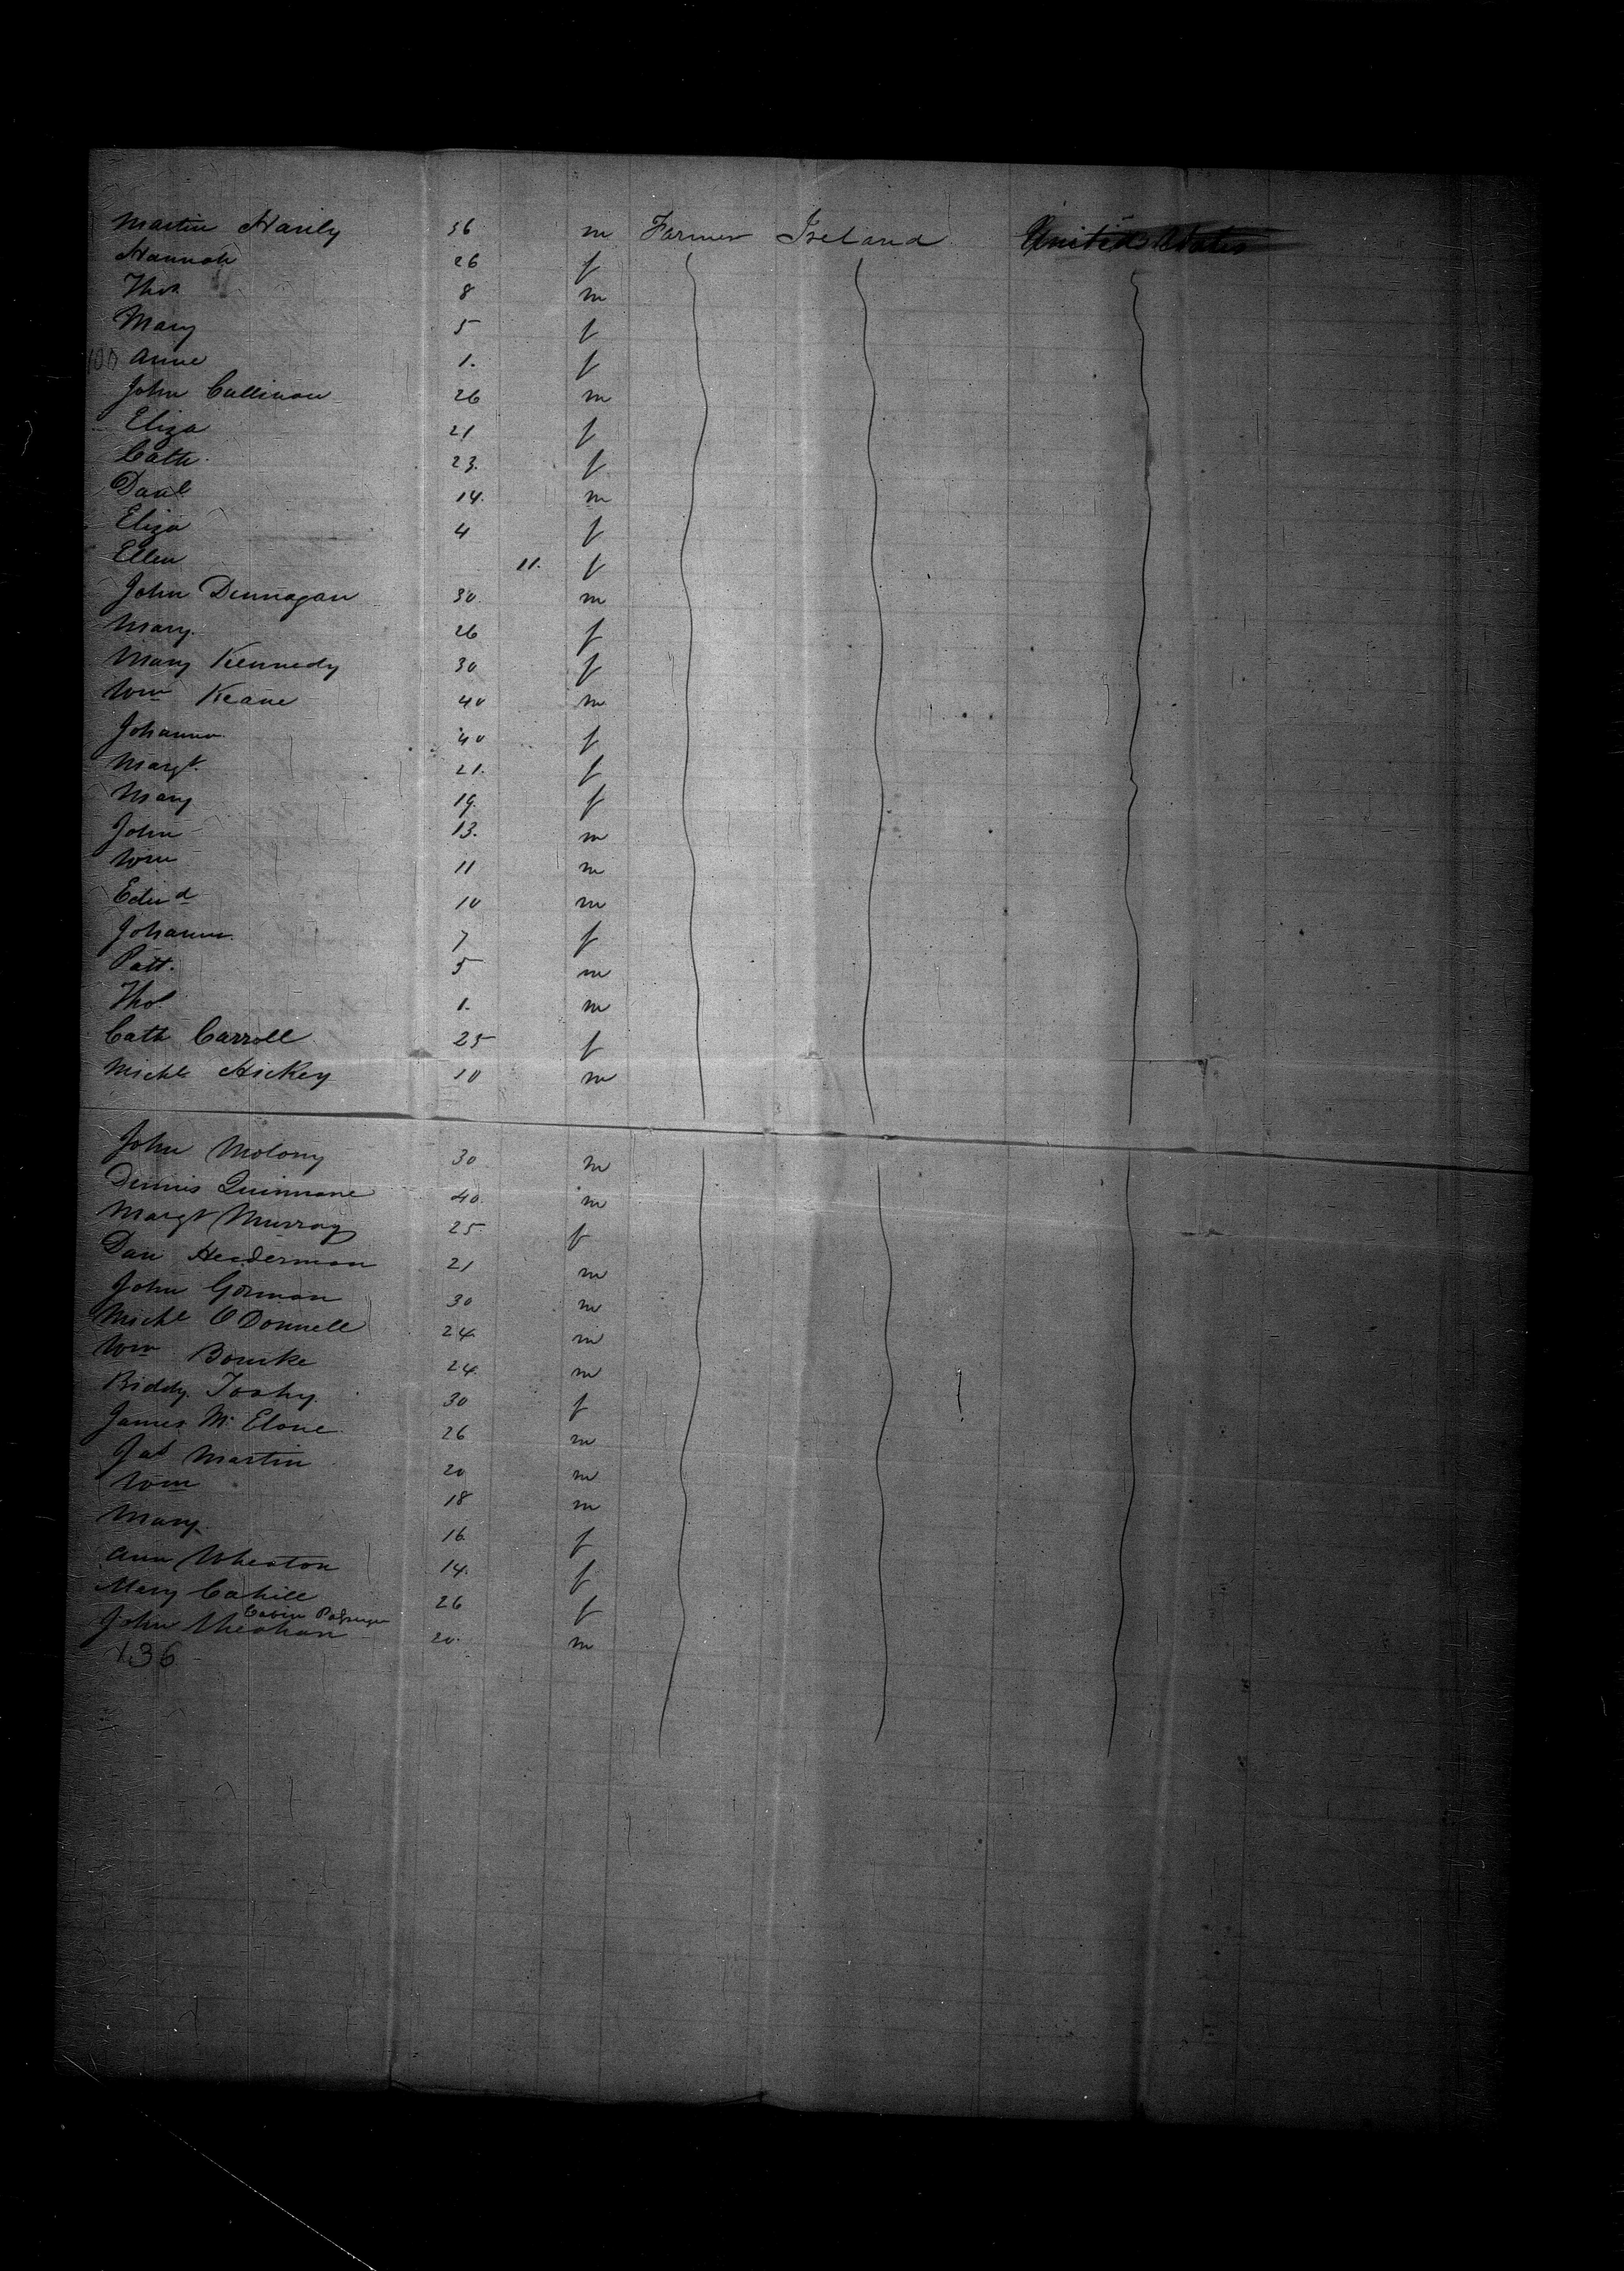 Martin Hanly 36 m Farmer Ireland United States
Hannah 26 f
Thos 8 m
Mary 5 f
100 Anne 1. f
John Callinan 26 m
Eliza 21 f
Cath 23. f
Danl 14. m
Eliza 4 f
Ellen 11. f
John Dennagan 30 m
Mary. 26 f
Mary Kennedy 30 f
Wm Keane 40 m
Johanna 40 f
Margt. 21. f
Mary 19. f
John 13. m
Wm 11 m
Edwd 10 m
Johanna 7 f
Patt. 5 m
Thos 1. m
Cath Carroll 25 f
Michl Hickey 10 m
John Molony 30 m
Dennis Quinnane 40. m
Margt Murray 25 f
Dan Hederman 21 m
John Gorman 30 m
Michl O Donnell 24 m
Wm Bourke 24. m
Biddy 30 f
James Mc 26 m
Jas Martin 20 m
Wm 18 m
Mary 16 f
Ann Wheaton 14. f
Mary Cahill 26 f
Cabin Passenger
John Meehan 20. m
136